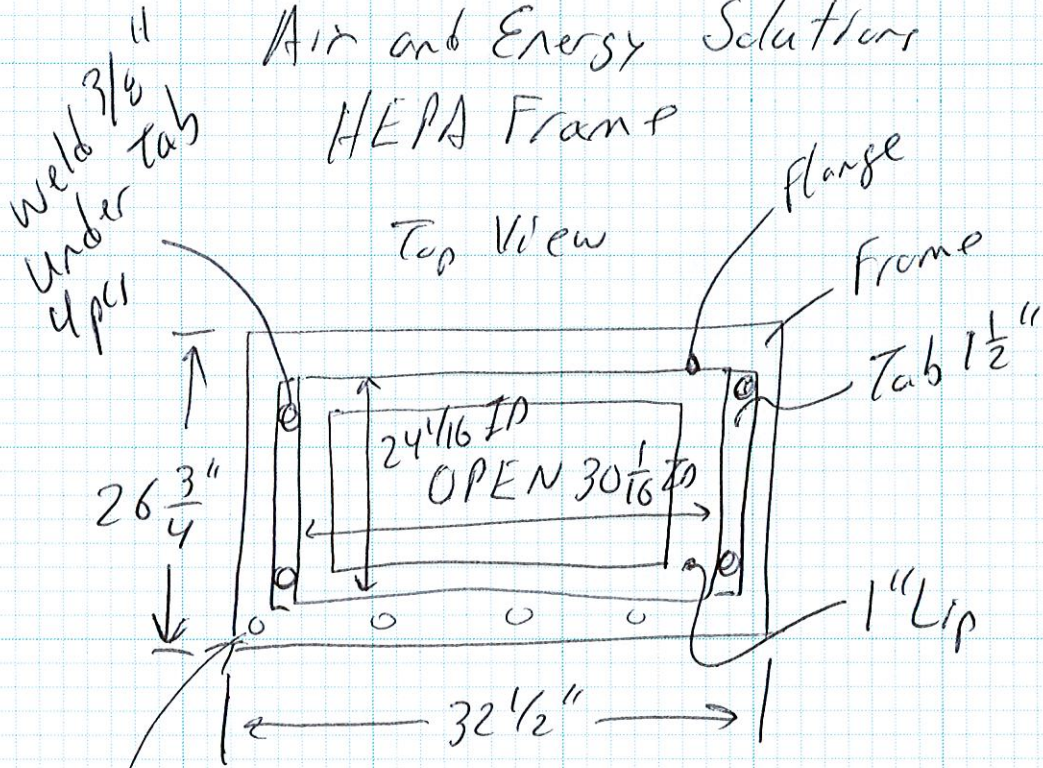 Air and Energy Solutions
HEPA Frame
Top View
weld 3/8"
under Tab
4 pcs
flange
Frame
Tab 1 1/2"
24 1/16 ID
OPEN 30 1/16 ID
26 3/4"
1" Lip
32 1/2"